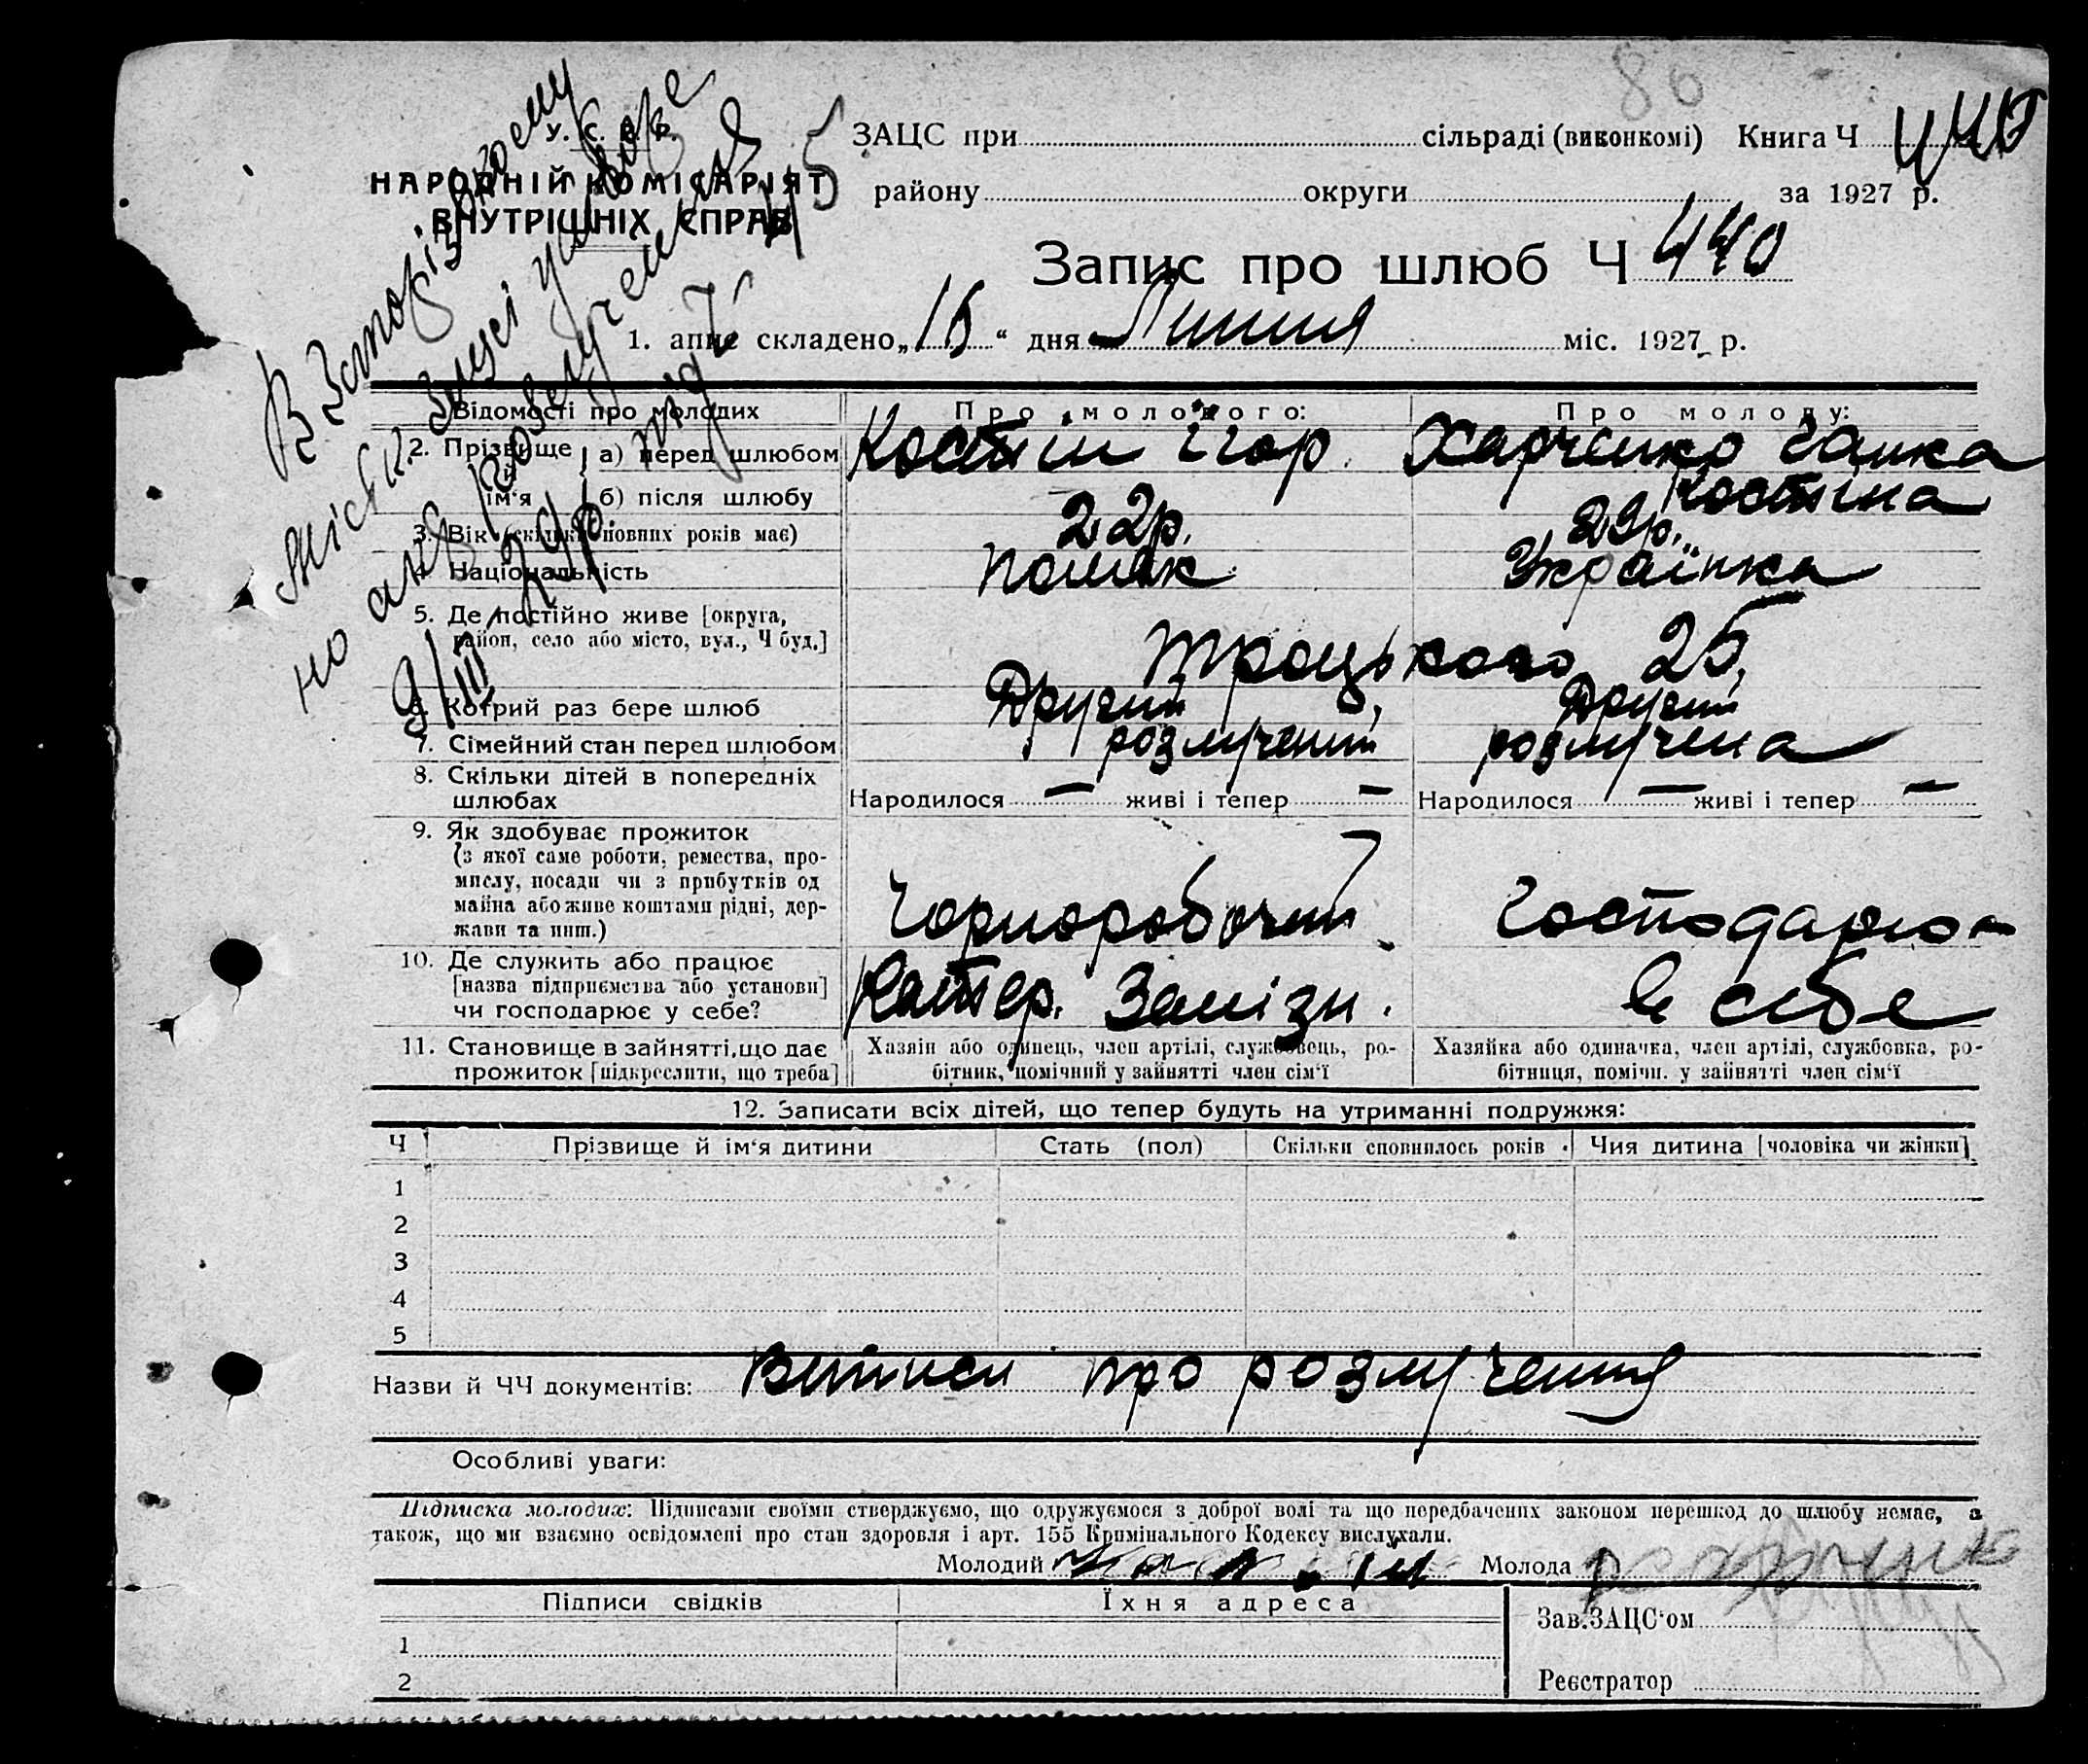 86
У. С. Р. Р.
НАРОДНІЙ КОМІСАРІЯТ
ВНУТРІШНІХ СПРАВ
ЗАЦС при сільраді (виконкомі) Книга Ч 440
району округи за 1927 р.
Запис про шлюб Ч 440
1. апис складено „16“ дня Липня міс. 1927 р.
В Запоріз
міськ. Загсі
но акт розлучення
9/III 29р. під Ч 45
Відомості про молодих Про молодого: Про молоду:
2. Прізвище й ім‘я а) перед шлюбом Костін Ігор. Харченко Ганка
б) після шлюбу Костіна
3. Вік (скільки повних років має) 22р. 29р.
4. Національність поляк Українка
5. Де постійно живе [округа,
район, село або місто, вул., Ч буд.] Троцького 25,
6. Котрий раз бере шлюб Другий, Другий
7. Сімейний стан перед шлюбом розлучений розлучена
8. Скільки дітей в попередніх
шлюбах Народилося — живі і тепер — Народилося — живі і тепер —
9. Як здобуває прожиток
(з якої саме роботи, ремества, про-
мислу, посади чи з прибутків од
майна або живе коштами рідні, дер-
жави та инш.) Чорноробочий Господарює
10. Де служить або працює
[назва підприємства або установи]
чи господарює у себе? Катер. Залізн. в себе
11. Становище в зайнятті, що дає Хазяїн або одинець, член артілі, службовець, ро- Хазяйка або одиначка, член артілі, службовка, ро-
прожиток [підкреслити, що треба] бітник, помічний у зайнятті член сім‘ї бітниця, помічн. у зайнятті член сім‘ї
12. Записати всіх дітей, що тепер будуть на утриманні подружжя:
Ч Прізвище й ім‘я дитини Стать (пол) Скільки сповнилось років Чия дитина [чоловіка чи жінки]
1
2
3
4
5
Назви й ЧЧ документів: Виписи про розлучення
Особливі уваги:
Підписка молодих: Підписами своїми стверджуємо, що одружуємося з доброї волі та що передбачених законом перешкод до шлюбу немає, а
також, що ми взаємно освідомлені про стан здоровля і арт. 155 Кримінального Кодексу вислухали.
Молодий Молода
Підписи свідків Їхня адреса
Зав. ЗАЦС‘ом
1
Реєстратор
2